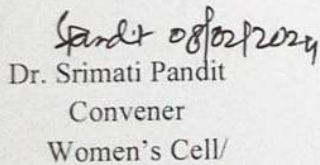 Pandit 08/02/2024
Dr. Srimati Pandit
Convener
Women's Cell/